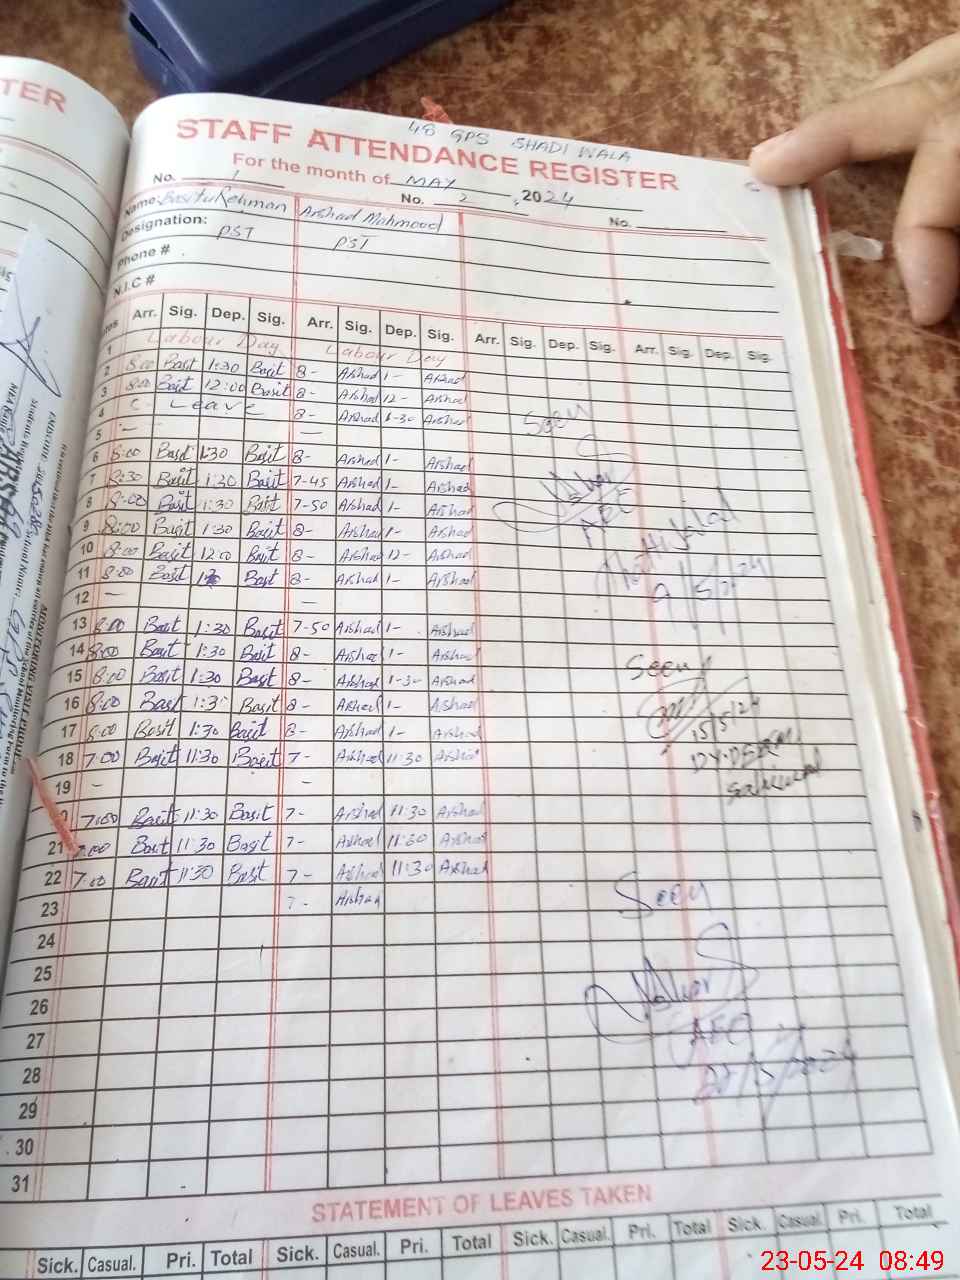 TER
48 GPS SHADI WALA
STAFF ATTENDANCE REGISTER
For the month of MAY 2024
No. 1 No. 2 No.
Name: Basitu Rehman Arshad Mahmood
Designation: PST PST
Phone #
N.I.C #
Arr. Sig. Dep. Sig. Arr. Sig. Dep. Sig. Arr. Sig. Dep. Sig. Arr. Sig. Dep. Sig.
1 Labour Day Labour Day
2 8:00 Basit 1:30 Basit 8- Arshad 1- Arshad
3 8:00 Basit 12:00 Basit 8- Arshad 12- Arshad
4 Leave 8- Arshad 1-30 Arshad
5 - -
6 8:00 Basit 1:30 Basit 8- Arshad 1- Arshad
7 8:30 Basit 1:30 Basit 7-45 Arshad 1- Arshad
8 8:00 Basit 1:30 Basit 7-50 Arshad 1- Arshad
9 8:00 Basit 1:30 Basit 8- Arshad 1- Arshad
10 8:00 Basit 12:00 Basit 8- Arshad 12- Arshad
11 8:00 Basit Basit 8- Arshad 1- Arshad
12 - -
13 8:00 Basit 1:30 Basit 7-50 Arshad 1- Arshad
14 8:00 Basit 1:30 Basit 8- Arshad 1- Arshad
15 8:00 Basit 1:30 Basit 8- Arshad 1-30 Arshad
16 8:00 Basit 1:30 Basit 8- Arshad 1- Arshad
17 8:00 Basit 1:30 Basit 8- Arshad 1- Arshad
18 7:00 Basit 11:30 Basit 7- Arshad 11:30 Arshad
19 - -
7:00 Basit 11:30 Basit 7- Arshad 11:30 Arshad
21 7:00 Basit 11:30 Basit 7- Arshad 11:30 Arshad
22 7:00 Basit 11:30 Basit 7- Arshad 11:30 Arshad
23 7- Arshad
24
25
26
27
28
29
30
31
Seen
AEO
9/5/2024
Seen
15/5/24
DY.DEO
Seen
AEO
22/5/2024
STATEMENT OF LEAVES TAKEN
Sick. Casual. Pri. Total Sick. Casual. Pri. Total Sick. Casual. Pri. Total Sick. Casual. Pri. Total
23-05-24 08:49